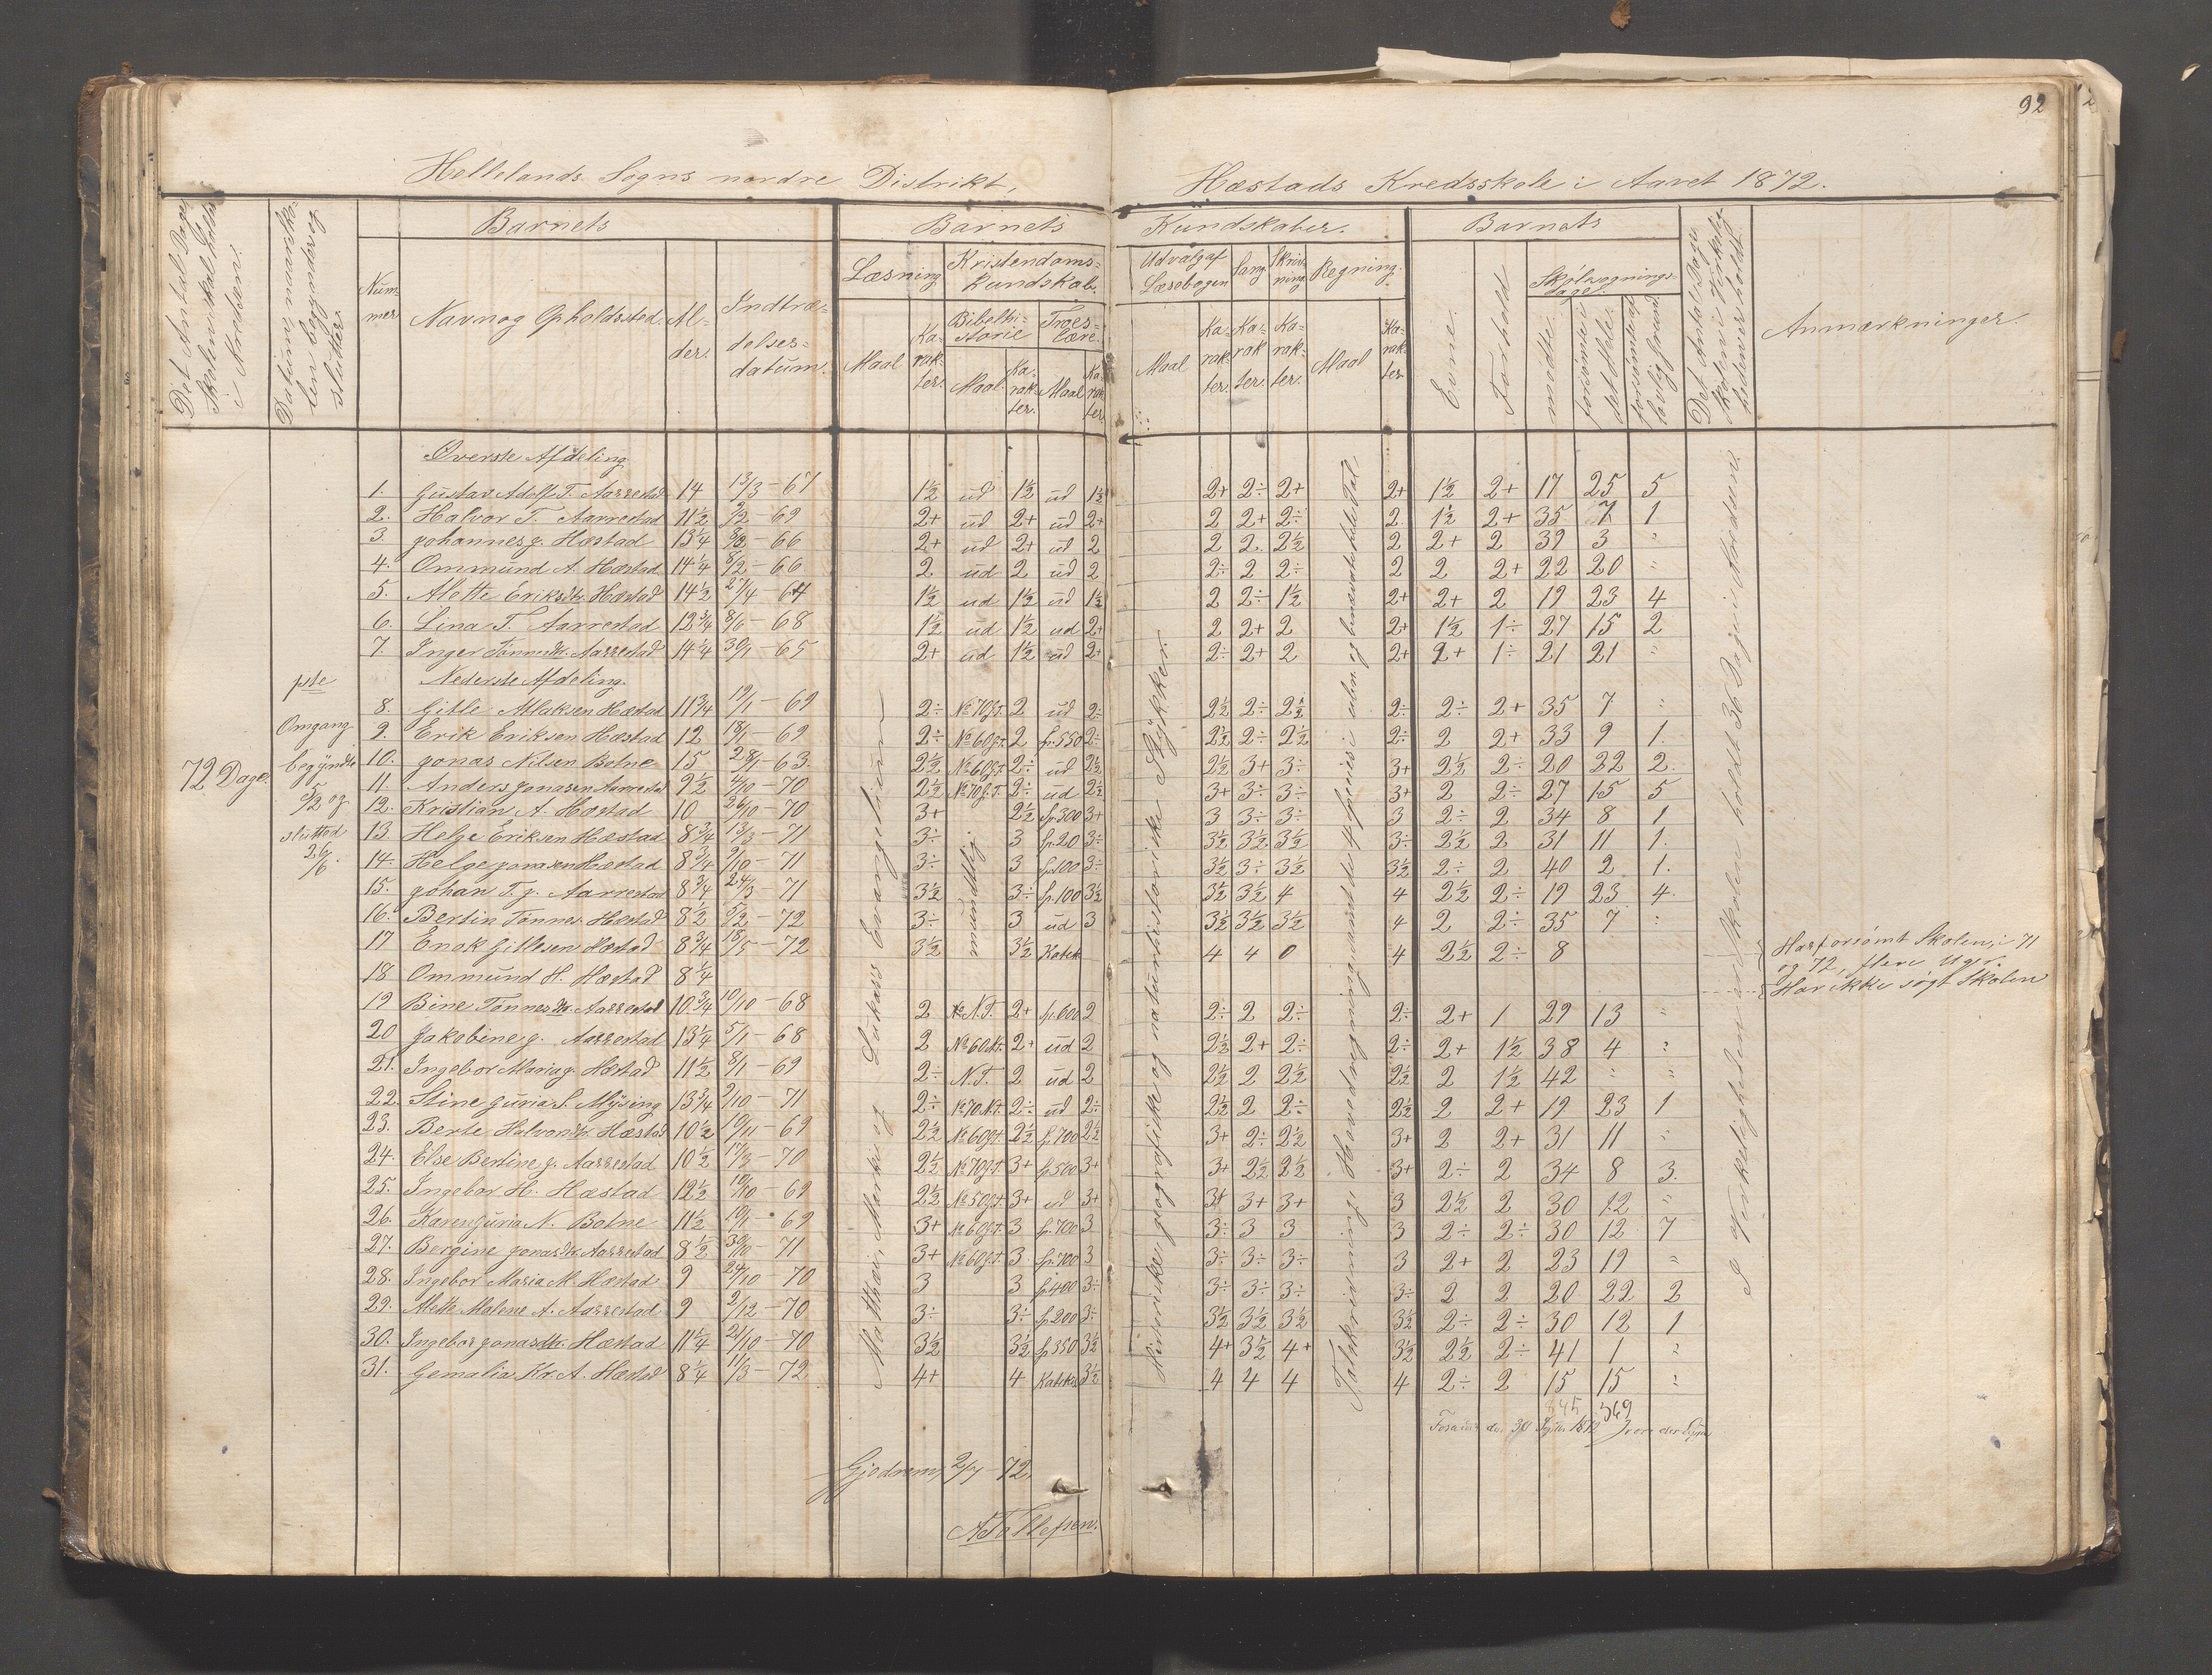 92
Hellelands Sogns nordre Distrikt,
Hæstads Kredsskole i Aaret 1872.
Det Antal Dage Skolen skal holdes i Kredsen.
Datum naar Skolen begyndes og sluttes.
Barnets
Barnets
Kundskaber.
Barnets
Det Antal Dage Skolen i Virkeligheden er holdt.
Anmærkninger.
Nummer
Navn og Opholdssted.
Alder.
Indtrædelsesdatum.
Læsning
Kristendomskundskab.
Udvalg af Læsebogen
Sang
Skrivning
Regning.
Evne.
Forhold
Skolesøgningsdage.
Bibelhistorie
Troeslære.
Maal
Karakter.
Maal
Karakter.
Maal
Karakter
Maal
Karakter.
Karakter.
Karakter.
Maal
Karakter
mødte.
forsømte i det Hele.
forsømte af lovlig Grund
Øverste Afdeling
1. Gustav Adolf T. Aarrestad 14 13/3 - 67 1½ ud 1½ ud 1½ 2+ 2÷ 2+ 2+ 1½ 2+ 17 25 5
2. Halvor T. Aarrestad 11½ 2/2 - 69 2+ ud 2+ ud 2+ 2 2+ 2÷ 2 1½ 2+ 35 7 1
3. Johannes J. Hæstad 13¼ - 66 2+ ud 2+ ud 2 2 2. 2½ 2 2+ 2 39 3 "
4. Ommund A. Hæstad 14¼ 8/2 - 66 2 ud 2 ud 2 2÷ 2 2÷ 2 2 2+ 22 20 "
5. Alette Eriksdtr. Hæstad 14½ 27/4 - 64 1½ ud 1½ ud 1½ 2 2÷ 1½ 2+ 2+ 2 19 23 4
6. Lina T. Aarrestad 12¾ 8/6 - 68 1½ ud 1½ ud 2+ 2 2+ 2 2+ 1½ 1÷ 27 15 2
7. Inger Tønnesdtr. Aarrestad 14¼ 30/1 - 65 2+ ud 1½ ud 2+ 2÷ 2+ 2 2+ 2+ 1÷ 21 21 "
Nederste Afdeling.
8. Gitle Aslaksen Hæstad 11¾ 19/1 - 69 2÷ No 70 g.t. 2 ud 2÷ 2½ 2÷ 2½ 2÷ 2÷ 2+ 35 7 "
9. Erik Eriksen Hæstad 12 18/1 - 69 2÷ No 60 g.t. 2 sp. 550 2÷ 2½ 2÷ 2½ 2÷ 2 2+ 33 9 1
10. Jonas Nilsen Botne 15 28/1 - 63. 2½ No 60 g.t. 2÷ ud 2½ 2½ 3+ 3÷ 3+ 2½ 2÷ 20 22 2.
11. Anders Jonasen Aarrestad 9½ 4/10 - 70 2½ No 70 g.T. 2÷ ud 2½ 3+ 3÷ 3÷ 3+ 2 2÷ 27 15 5
12. Kristian A. Hæstad 10 26/10 - 70 3+ 2½ sp. 300 3+ 3 3÷ 3÷ 3 2÷ 2 34 8 1
13. Helge Eriksen Hæstad 8¾ 13/3 - 71 3÷ 3 sp. 20 3÷ 3½ 3½ 3½ 3÷ 2½ 2 31 11 1.
14. Helge Jonasen Hæstad 8¾ 2/10 - 71 3÷ 3 sp. 100 3÷ 3½ 3÷ 3½ 3½ 2÷ 2 40 2 1.
15. Johan T. J. Aarrestad 8¾ 24/3 - 71 3½ 3÷ sp. 100 3½ 3½ 3½ 4 4 2½ 2÷ 19 23 4.
16. Bertin Tønnes. Hæstad 8½ 5/2 - 72 3÷ 3 ud 3 3½ 3½ 3½ 4 2 2÷ 35 7 "
17 Enok Gitlesen Hæstad 8¾ 18/5 - 72 3½ 3½ Katek 4 4 0 4 2½ 2÷ 8
18 Ommund H. Hæstad 8¼
19 Bine Tønnesdtr. Aarrestad 10¾ 10/10 - 68 2 N.T. 2+ sp. 600 2 2÷ 2 2÷ 2÷ 2+ 1 29 13 "
20 Jakobine J. Aarrestad 13¼ 5/1 - 68 2 No 60 N.t. 2+ ud 2 2½ 2+ 2÷ 2÷ 2+ 1½ 38 4 "
21. Ingebor Maria J. Hæstad 11½ 8/1 - 69 2÷ N.T. 2 ud 2 2½ 2 2½ 2½ 2 1½ 42 " "
22. Stine Guria S. Mysing 13¾ 2/10 - 71 2÷ No 70 N.T. 2÷ ud 2÷ 2½ 2 2÷ 2½ 2 2+ 19 23 1
23. Berte Halvorsdtr. Hæstad 10½ 19/11 - 69 2½ No 60 g.t. 2½ sp. 700 2½ 3+ 2÷ 2½ 3+ 2 2+ 31 11 "
24. Else Bertine J. Aarrestad 10½ 17/3 - 70 2½ No 70 g.t. 3+ sp. 500 3+ 3+ 2½ 2½ 3+ 2÷ 2 34 8 3.
25. Ingebor H. Hæstad 12½ 19/10 - 69 2½ No 50 g.t. 3+ ud 3+ 3+ 3+ 3+ 3 2½ 2 30 12 "
26. Karen Guria N. Botne 11½ 19/1 - 69 3+ No 60 g.t. 3 sp. 700 3 3÷ 3 3 3 2÷ 2÷ 30 12 7
27. Bergine Jonasdtr. Aarrestad 8½ 30/10 - 71 3+ No 60 g.t. 3 sp. 700 3 3÷ 3÷ 3÷ 3 2+ 2 23 19 "
28. Ingebor Maria M. Hæstad 9 24/10 - 70 3 3 sp. 400 3÷ 3÷ 3÷ 3÷ 3÷ 2 2 20 22 2
29. Alette Malene A. Aarrestad 9 2/12 - 70 3÷ 3÷ sp. 200 3÷ 3½ 3½ 3½ 3½ 2÷ 2÷ 30 12 1
30. Ingebor Jonasdtr. Hæstad 11¼ 21/10 - 70 3½ 3½ sp. 350 3½ 4+ 3½ 4+ 3½ 2½ 2÷ 41 1 "
31. Gemalia Kr. A. Hæstad 8¼ 11/3 - 72 4+ 4 Katek. 3½ 4 4 4 4 2÷ 2 15 15 "
72 Dage.
1ste
Omgang
begyndte
5/2 og
slutted
26/6.
Mattæi, Marki og Lukas Evangelium
mundtlig.
Historiske, geografiske og naturhistoriske Stykker.
I Virkeligheden er Skolen holdt 36 Dage i Kredsen.
Har forsømt Skolen, i 71
og 72, flere Uger.
Har ikke søgt Skolen
845 349
Gjedrem, 2/7 - 72.
A. Tollefsen.